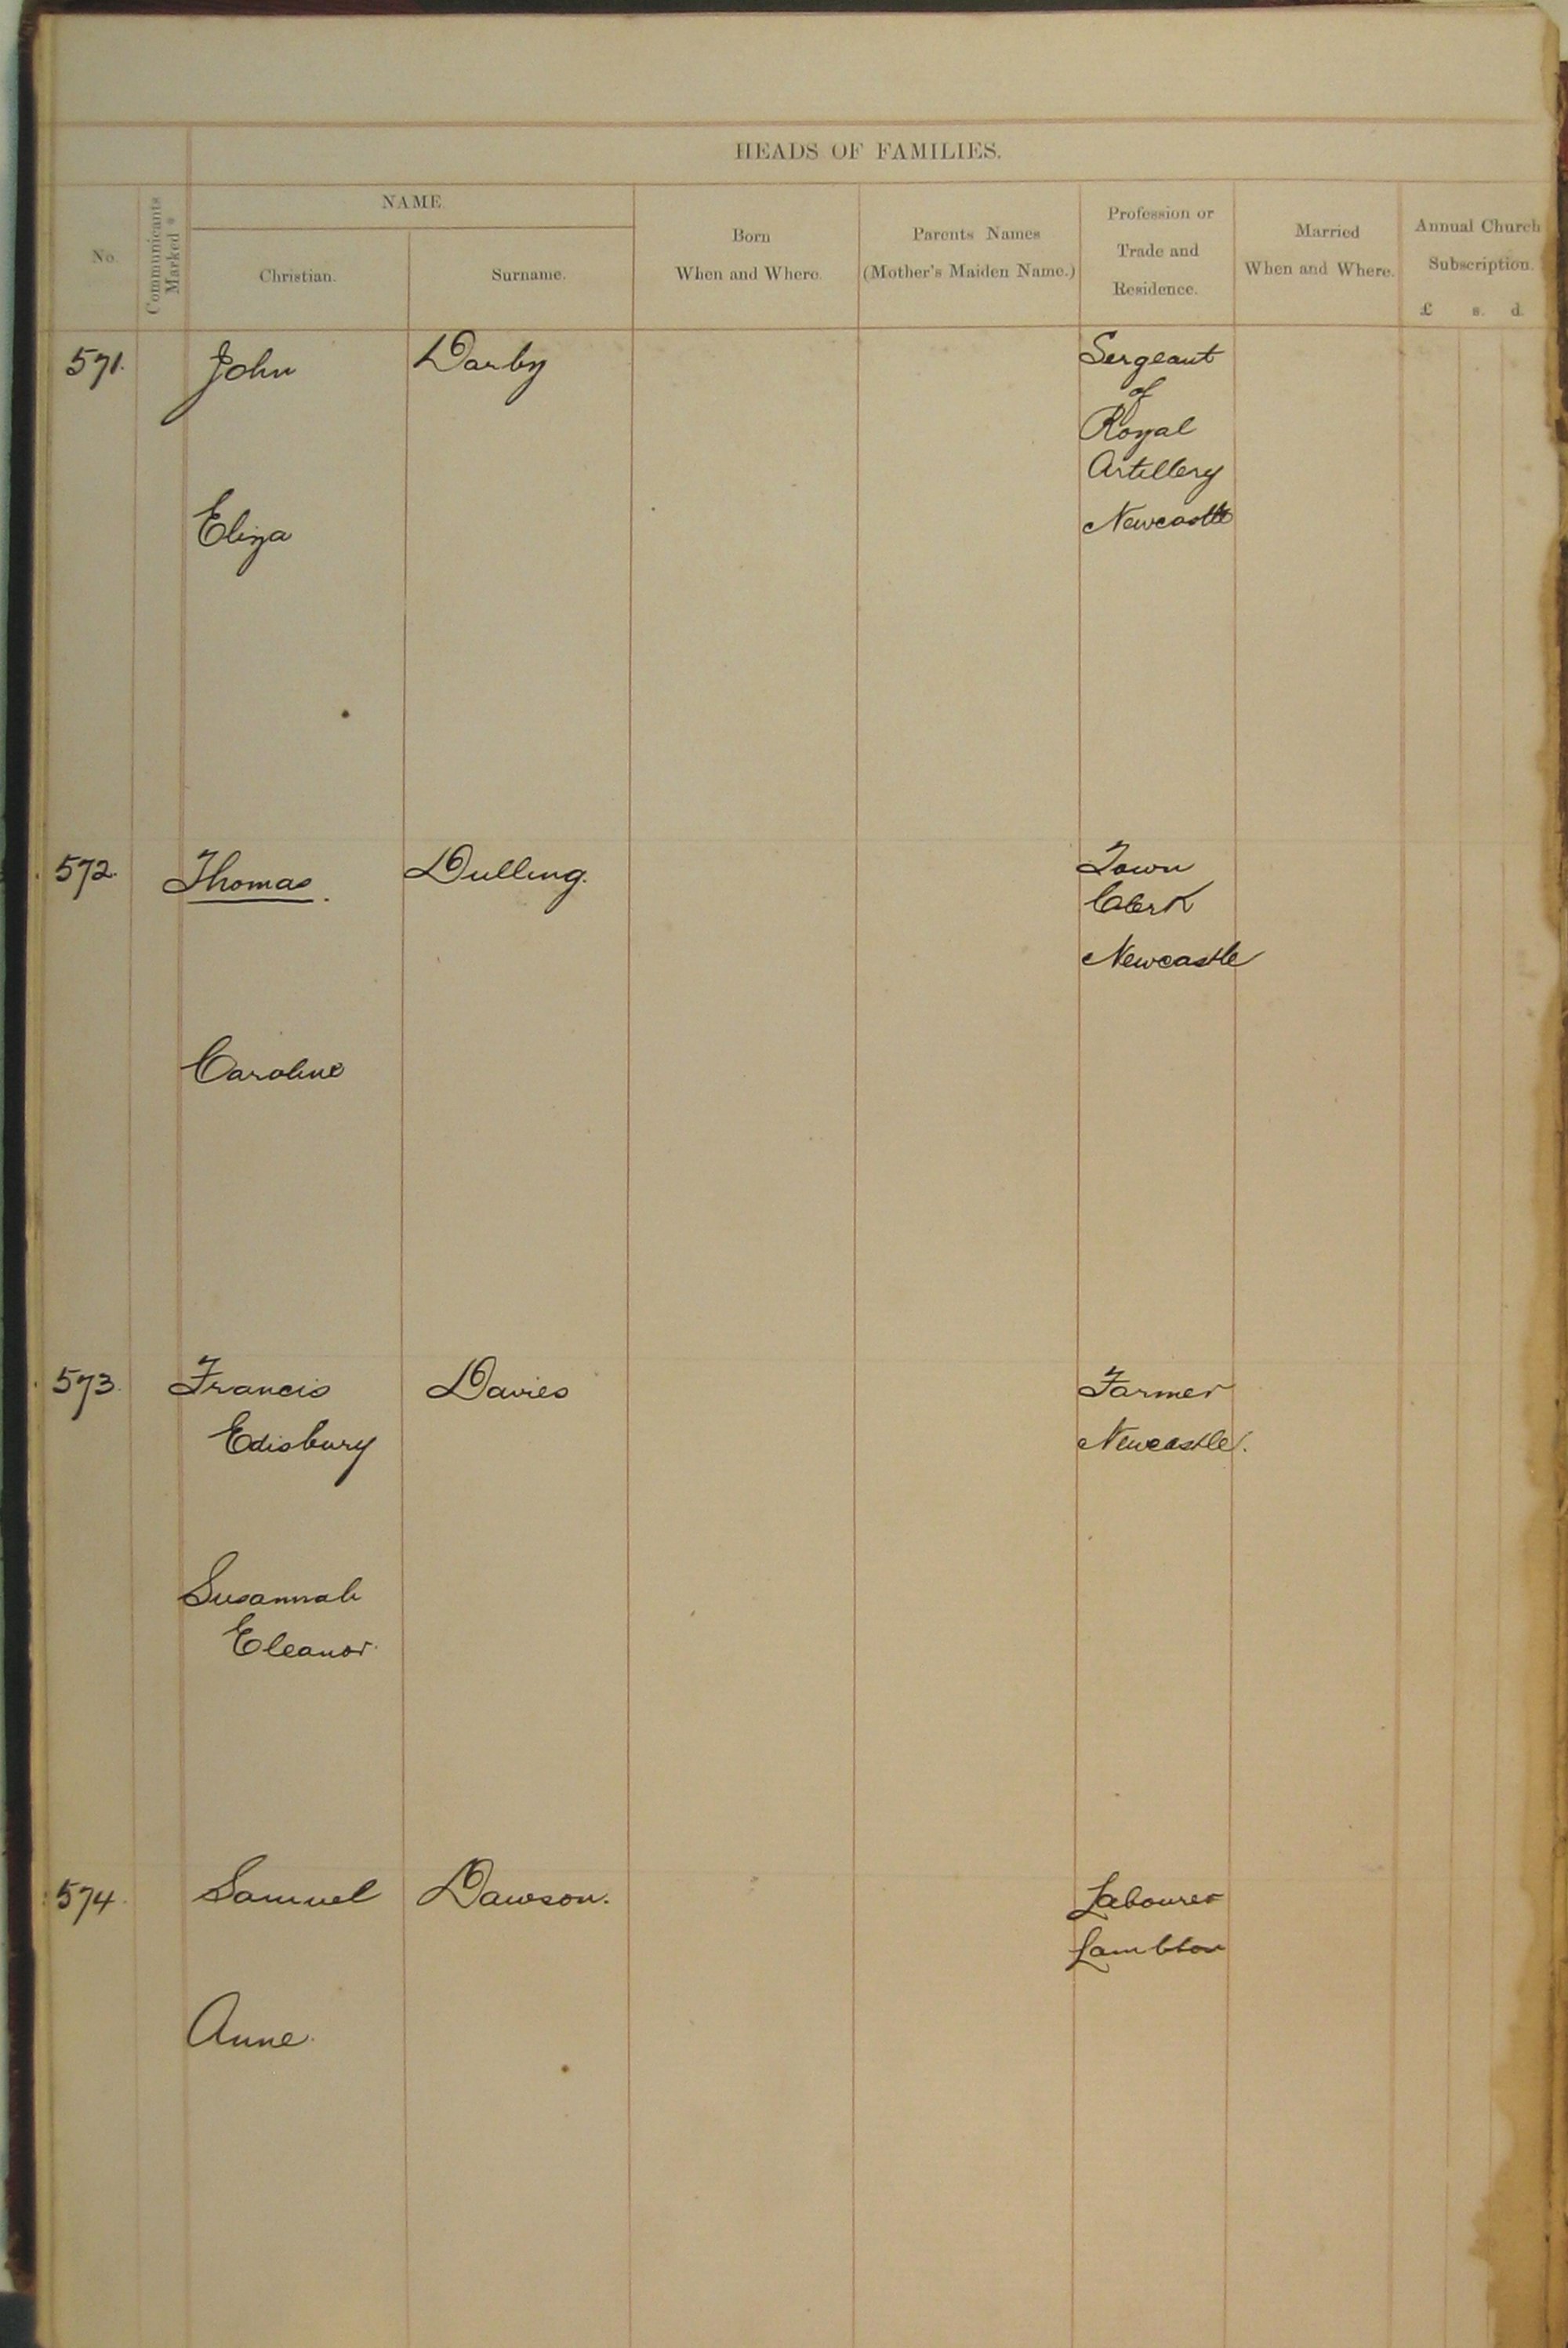 HEADS OF FAMILIES.
No.
Communicants Marked *
NAME.
Christian.
Surname.
Born
When and Where.
Parents Names
(Mother's Maiden Name.)
Profession or
Trade and
Residence.
Married
When and Where.
Annual Church
Subscription.
£ s. d.
571. John Darby Sergeant
of
Royal
Artillery
Eliza Newcastle
572. Thomas. Dulling. Town
Clerk
Newcastle
Caroline
573. Francis Davies Farmer
Edisbury Newcastle.
Susannah
Eleanor.
574. Samuel Dawson. Labourer
Lambton
Anne.